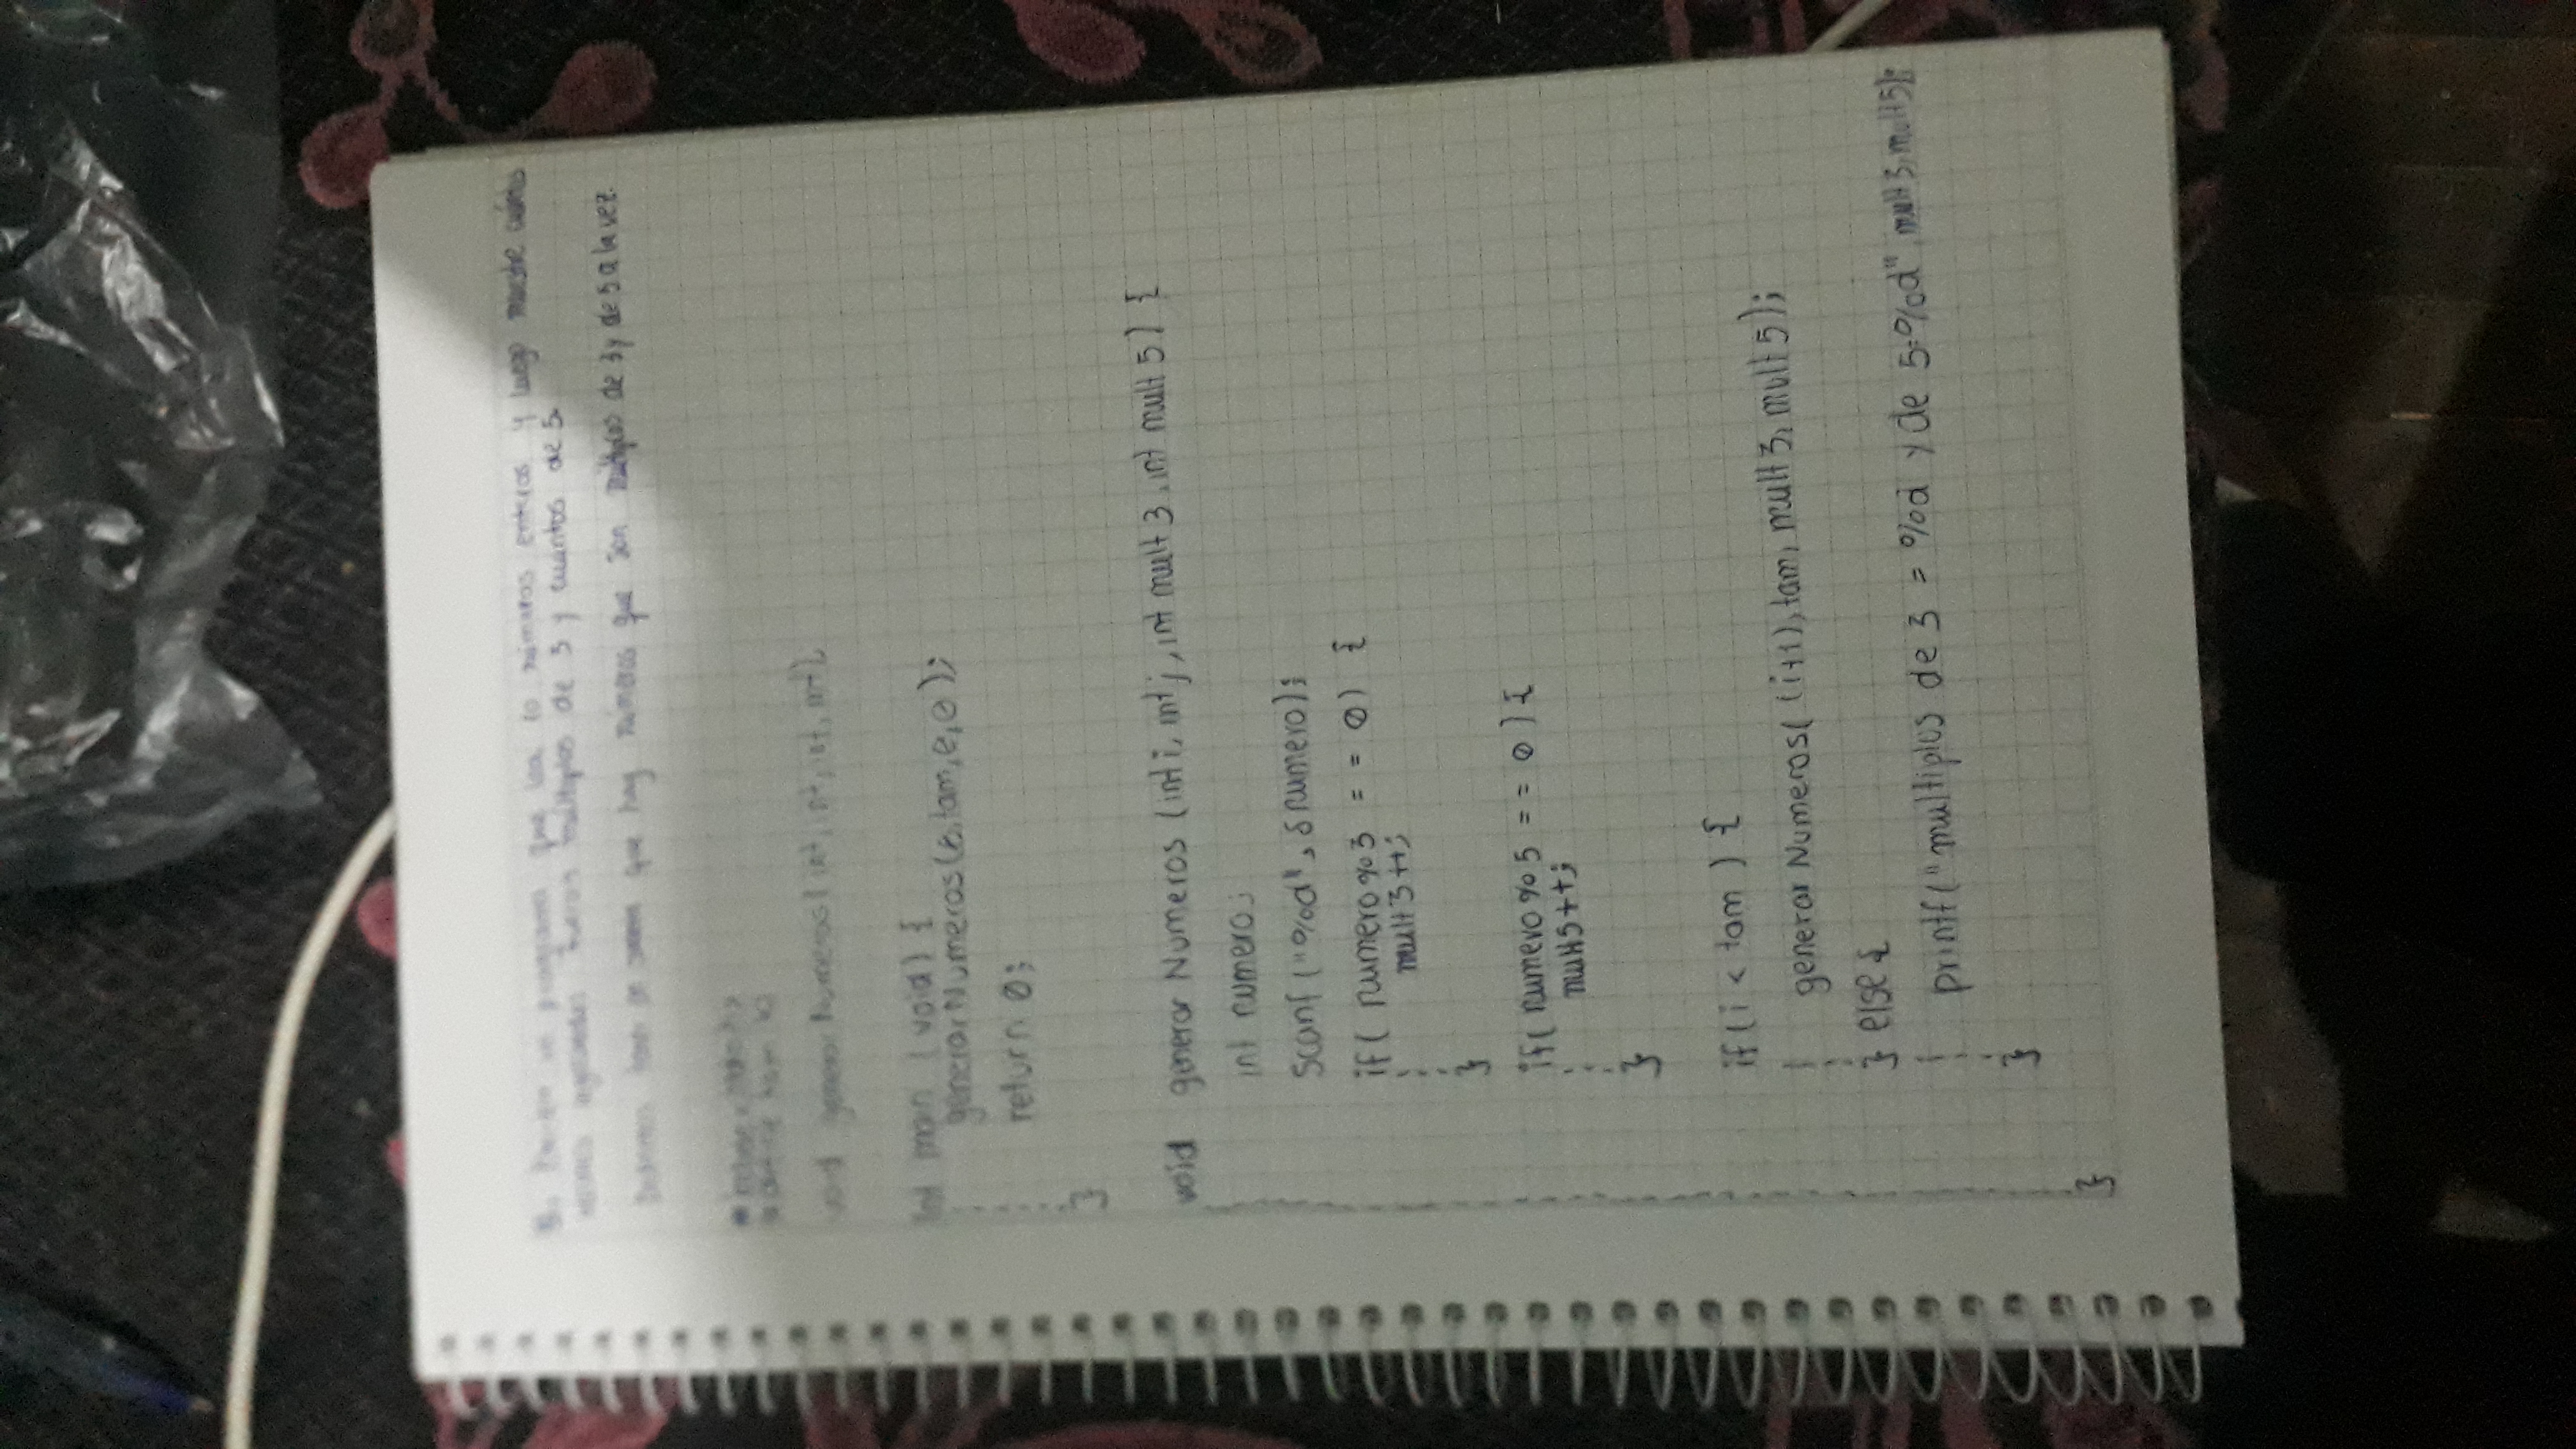 programa que lea 10 números enteros y luego muestre cuántos
fueron múltiplos de 3 y cuantos de 5.
que hay números que son múltiplos de 3 y de 5 a la vez.
#define tam 10
void generarNumeros(int, int, int, int);
int main (void) {
generarNumeros(0, tam, 0, 0);
return 0;
}
void generar Numeros (int i, int j, int mult 3, int mult 5) {
int numero;
scanf ("%d", &numero);
if( numero%3 = = 0) {
mult 3 ++;
}
if( numero%5 = = 0 ) {
mult5++;
}
if (i < tam ) {
generar Numeros( (i+1), tam, mult 3, mult 5);
} else {
printf("multiplos de 3 = %d y de 5=%d", mult 3, mult 5);
}
}